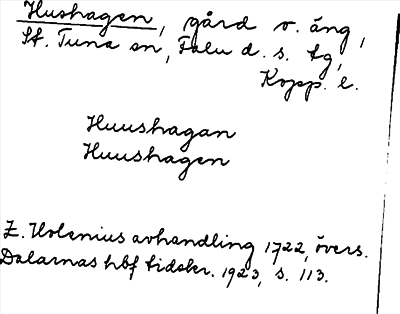 Hushagen, gård o. äng,
St. Tuna sn, Falu d. s. tg,
Kopp. l.
Huushagan
Huushagen
E. Holenius avhandling 1722, övers.
Dalarnas hbf tidskr. 1923, s. 113.